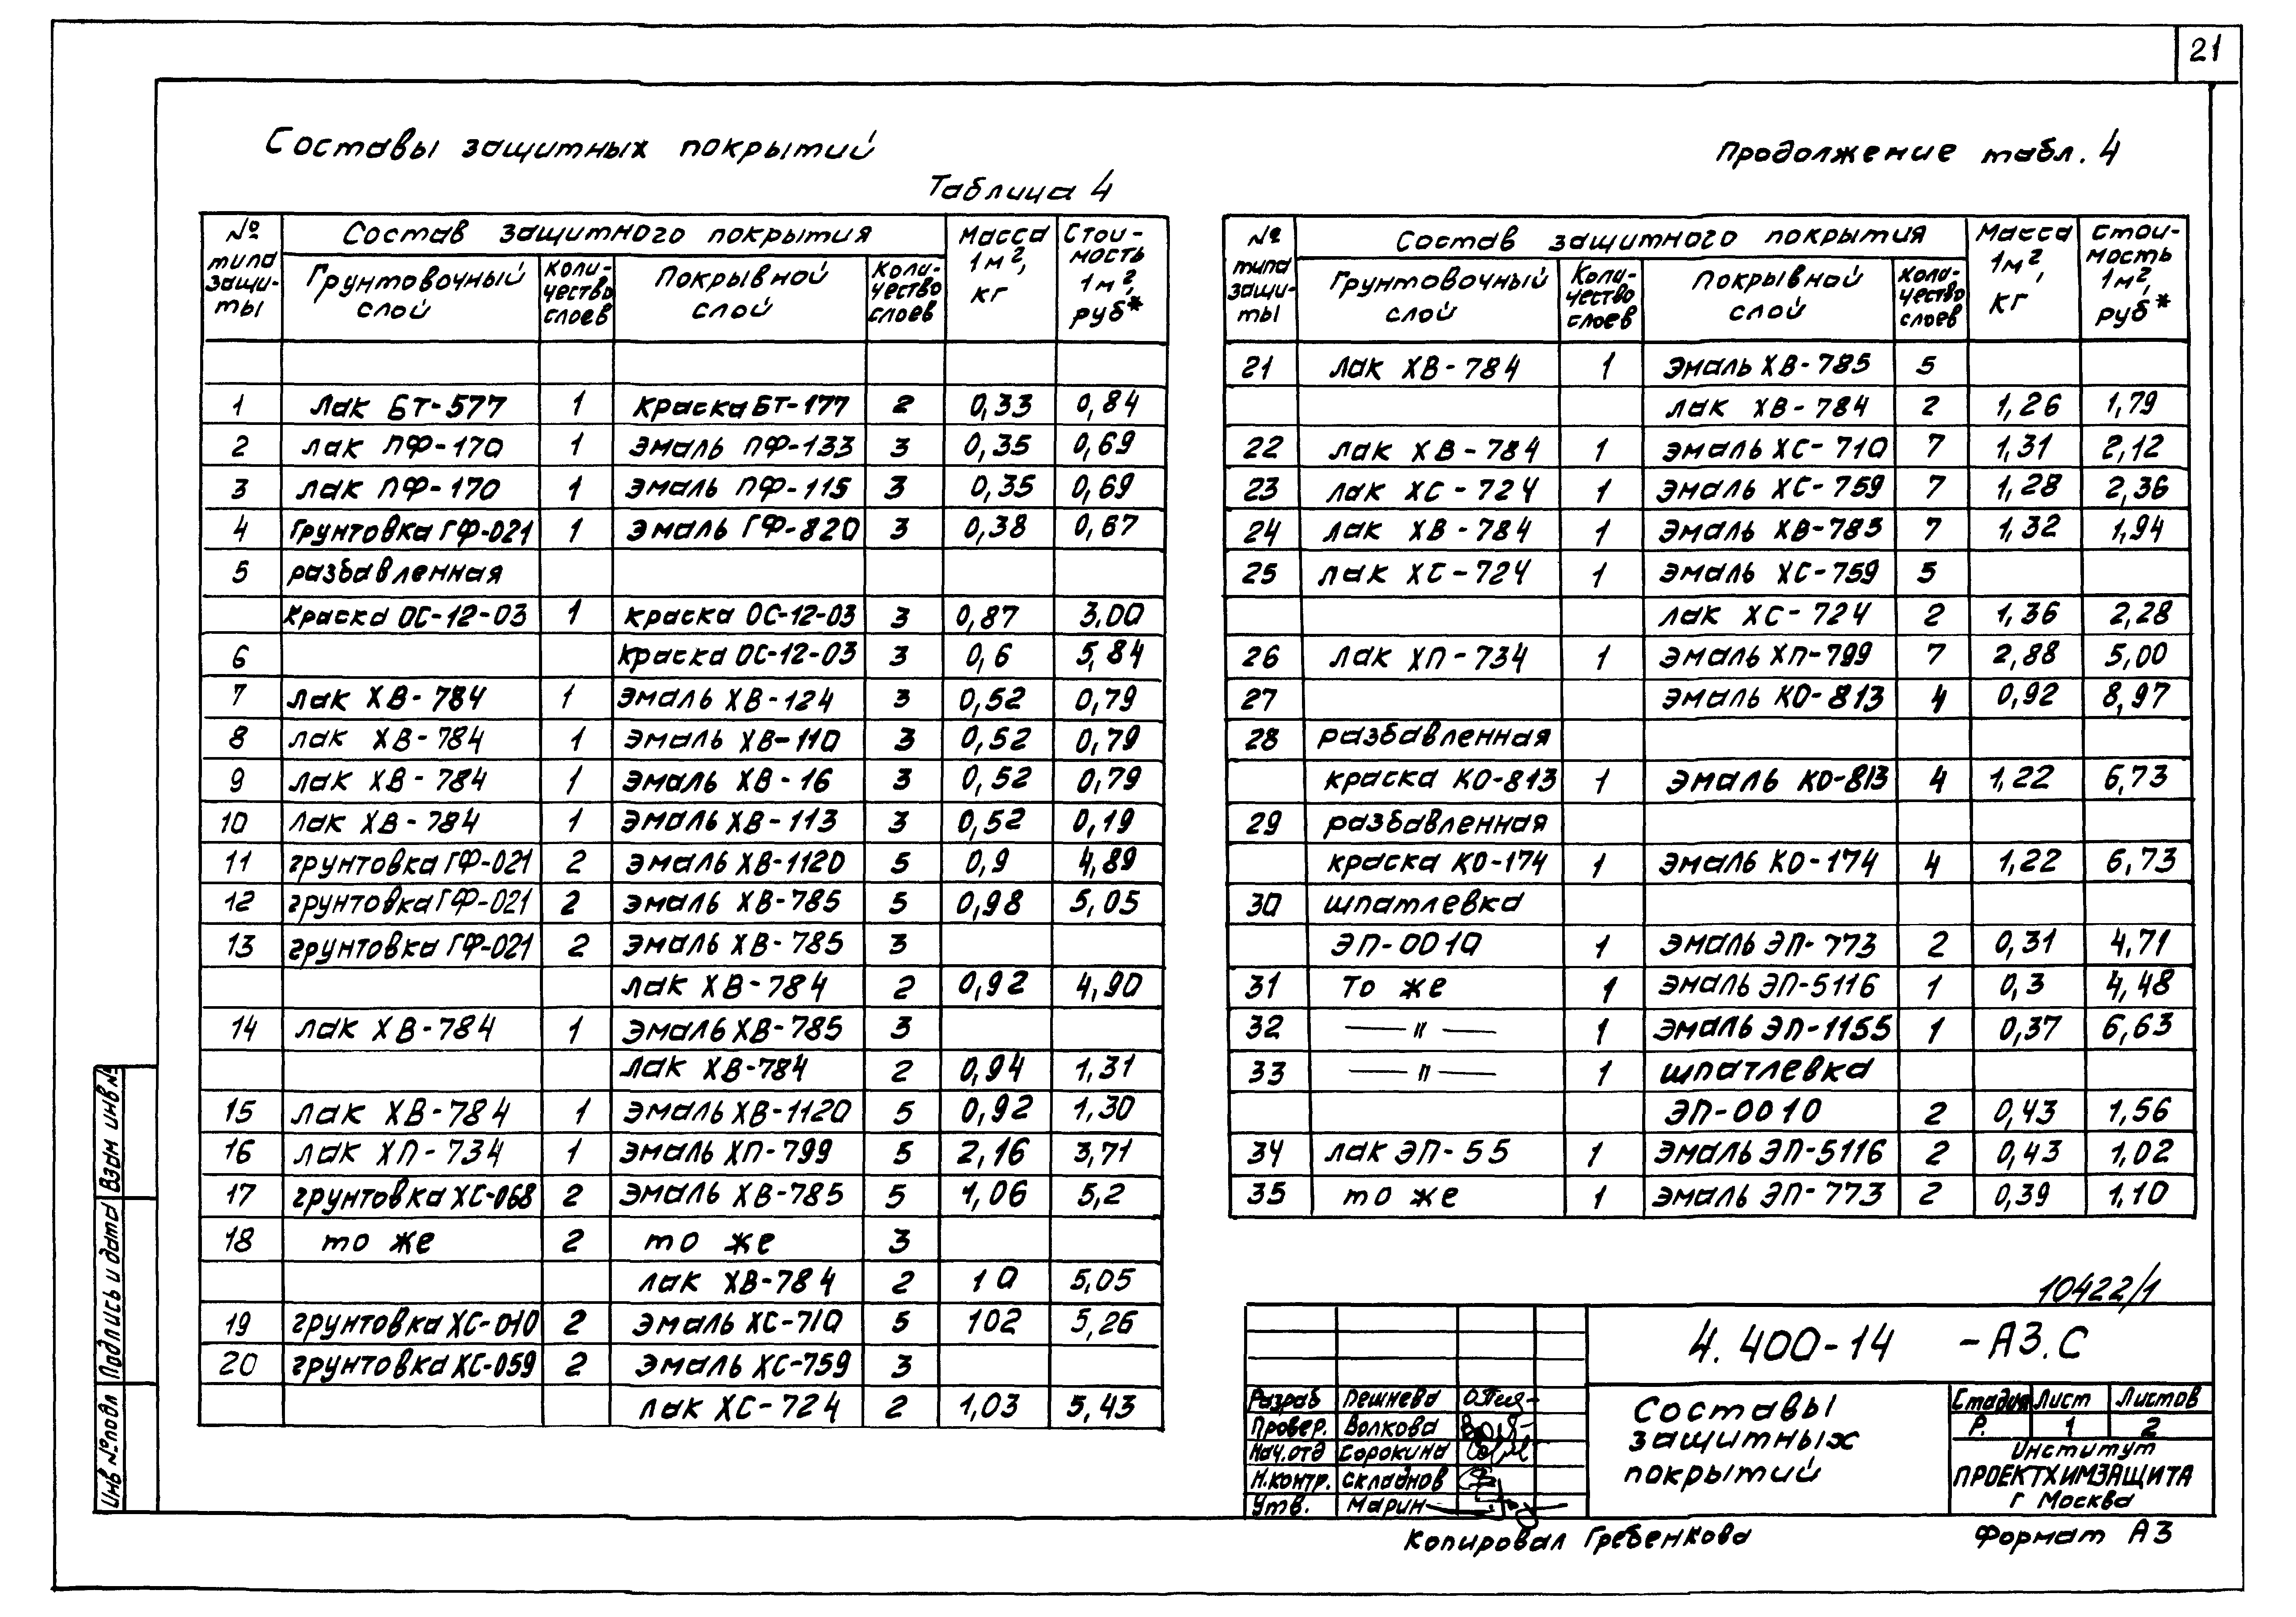 21
Составы защитных покрытий
Таблица 4
№ типа защиты | Состав защитного покрытия | Масса 1м², кг | Стоимость 1м², руб*
Грунтовочный слой | Количество слоев | Покрывной слой | Количество слоев
1 лак БТ-577 1 краска БТ-177 2 0,33 0,84
2 лак ПФ-170 1 эмаль ПФ-133 3 0,35 0,69
3 лак ПФ-170 1 эмаль ПФ-115 3 0,35 0,69
4 Грунтовка ГФ-021 1 эмаль ГФ-820 3 0,38 0,67
5 разбавленная
краска ОС-12-03 1 краска ОС-12-03 3 0,87 3,00
6 краска ОС-12-03 3 0,6 5,84
7 лак ХВ-784 1 эмаль ХВ-124 3 0,52 0,79
8 лак ХВ-784 1 эмаль ХВ-110 3 0,52 0,79
9 лак ХВ-784 1 эмаль ХВ-16 3 0,52 0,79
10 лак ХВ-784 1 эмаль ХВ-113 3 0,52 0,19
11 грунтовка ГФ-021 2 эмаль ХВ-1120 5 0,9 4,89
12 грунтовка ГФ-021 2 эмаль ХВ-785 5 0,98 5,05
13 грунтовка ГФ-021 2 эмаль ХВ-785 3
лак ХВ-784 2 0,92 4,90
14 лак ХВ-784 1 эмаль ХВ-785 3
лак ХВ-784 2 0,94 1,31
15 лак ХВ-784 1 эмаль ХВ-1120 5 0,92 1,30
16 лак ХП-734 1 эмаль ХП-799 5 2,16 3,71
17 грунтовка ХС-068 2 эмаль ХВ-785 5 1,06 5,2
18 то же 2 то же 3
лак ХВ-784 2 1 0 5,05
19 грунтовка ХС-010 2 эмаль ХС-710 5 102 5,26
20 грунтовка ХС-059 2 эмаль ХС-759 3
лак ХС-724 2 1,03 5,43
Продолжение табл. 4
№ типа защиты | Состав защитного покрытия | Масса 1м², кг | Стоимость 1м², руб*
Грунтовочный слой | Количество слоев | Покрывной слой | Количество слоев
21 лак ХВ-784 1 эмаль ХВ-785 5
лак ХВ-784 2 1,26 1,79
22 лак ХВ-784 1 эмаль ХС-710 7 1,31 2,12
23 лак ХС-724 1 эмаль ХС-759 7 1,28 2,36
24 лак ХВ-784 1 эмаль ХВ-785 7 1,32 1,94
25 лак ХС-724 1 эмаль ХС-759 5
лак ХС-724 2 1,36 2,28
26 лак ХП-734 1 эмаль ХП-799 7 2,88 5,00
27 эмаль КО-813 4 0,92 8,97
28 разбавленная
краска КО-813 1 эмаль КО-813 4 1,22 6,73
29 разбавленная
краска КО-174 1 эмаль КО-174 4 1,22 6,73
30 шпатлевка
ЭП-0010 1 эмаль ЭП-773 2 0,31 4,71
31 то же 1 эмаль ЭП-5116 1 0,3 4,48
32 —"— 1 эмаль ЭП-1155 1 0,37 6,63
33 —"— 1 шпатлевка
ЭП-0010 2 0,43 1,56
34 лак ЭП-55 1 эмаль ЭП-5116 2 0,43 1,02
35 то же 1 эмаль ЭП-773 2 0,39 1,10
10422/1
4.400-14 -АЗ.С
Разраб Пешнева
Провер. Волкова
Нач.отд Сорокина
Н.контр. Складнов
Утв. Марин
Составы
защитных
покрытий
Стадия Лист Листов
Р. 1 2
Институт
ПРОЕКТХИМЗАЩИТА
г Москва
Копировал Гребенкова
Формат А3
Взам инв №
Подпись и дата
Инв № подл